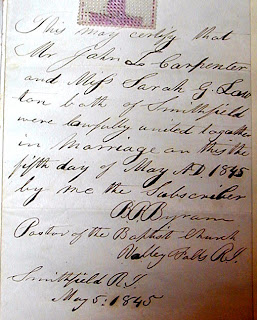 This may certify that
Mr John L Carpenter
and Miss Sarah G Law
ton both of Smithfield
were lawfully united together
in Marriage on this the
fifth day of May A.D. 1845
by me the Subscriber
B.P. Byram
Pastor of the Baptist Church
Valley Falls R.I.
Smithfield R.I.
May 5: 1845